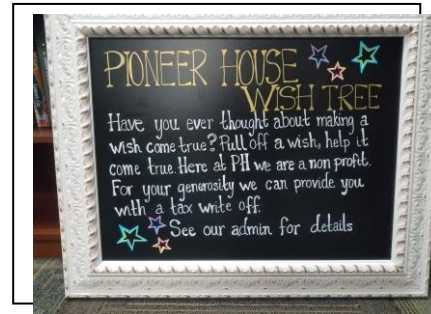 PIONEER HOUSE
WISH TREE
Have you ever thought about making a
wish come true? Pull off a wish, help it
come true. Here at PH we are a non profit.
For your generosity we can provide you
with a tax write off.
See our admin for details